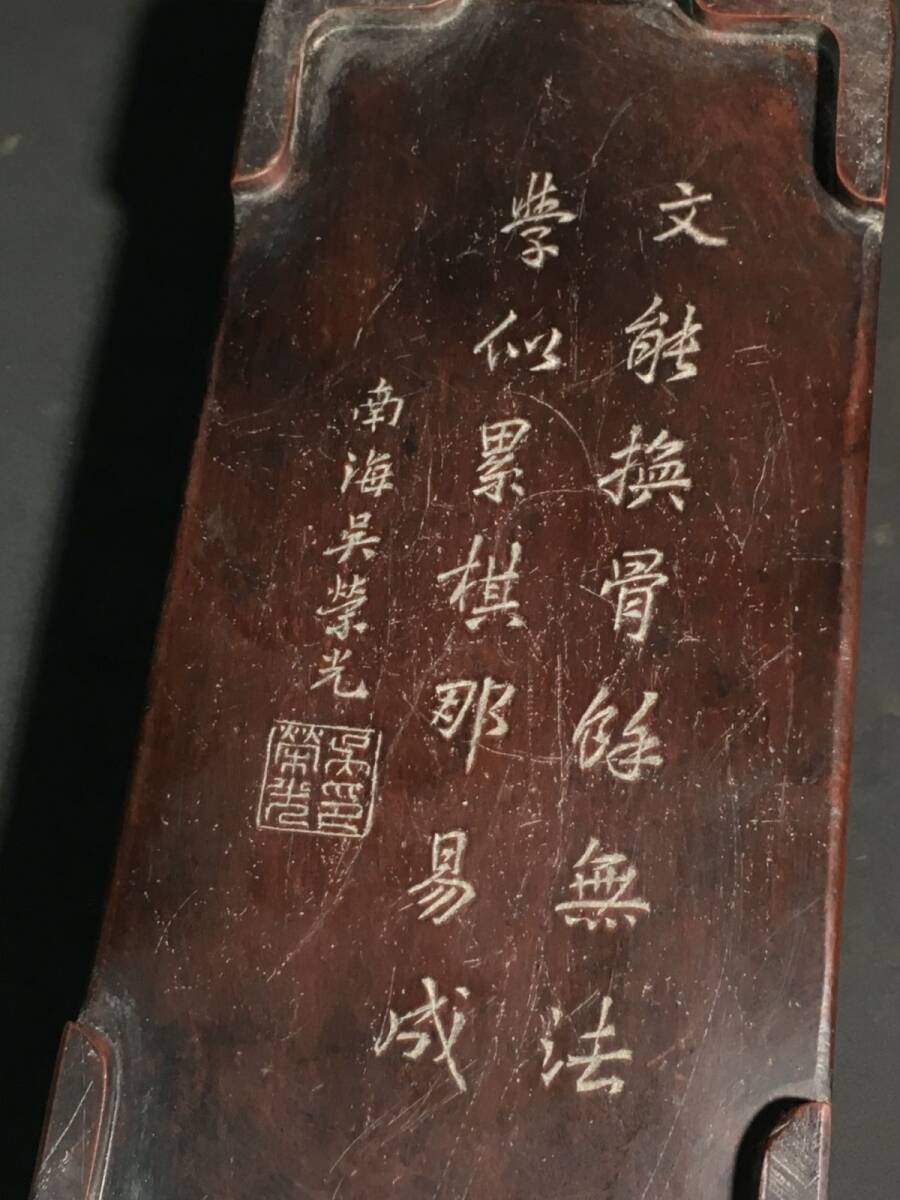 文能換骨餘無法
學似累棋那易成
南海吳榮光
吳榮光印